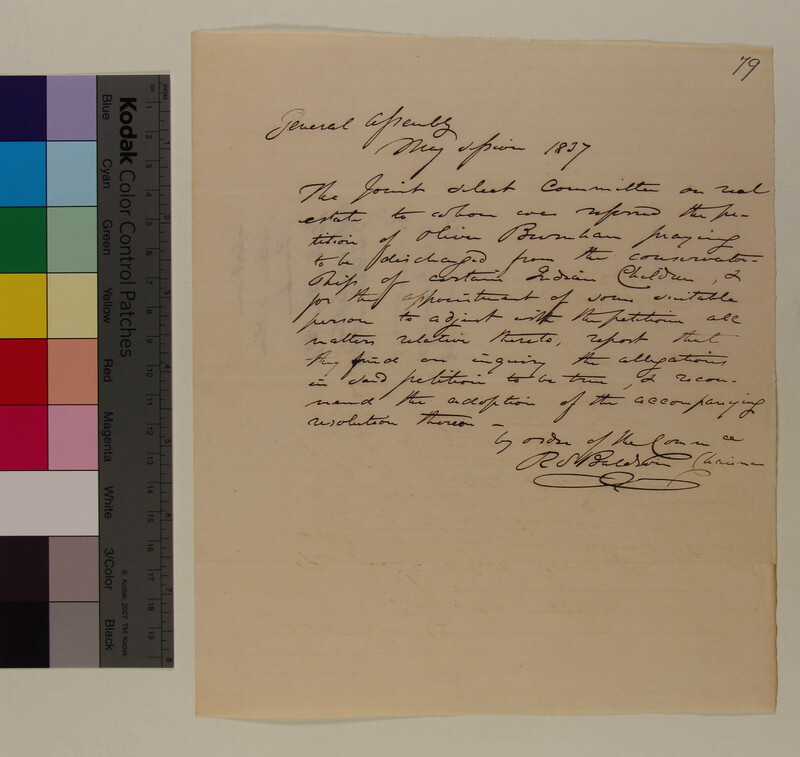 79
General Assembly
May Session 1837
The Joint select Committee on real
estate to whom was referred the pe-
tition of Oliver Burnham praying
to be discharged from the conservator-
ship of certain Indian Children, &
for the appointment of some suitable
person to adjust with the petitioner all
matters relative thereto, report that
they find on inquiry the allegations
in said petition to be true, & recom-
mend the adoption of the accompanying
resolution thereon -
by order of the Commee
R S Baldwin Chairman
Kodak Color Control Patches
Blue
Cyan
Green
Yellow
Red
Magenta
White
3/Color
Black
© Kodak, 2007 TM: Kodak
cm 1 2 3 4 5 6 7 8 9 10 11 12 13 14 15 16 17 18 19
inches 1 2 3 4 5 6 7 8